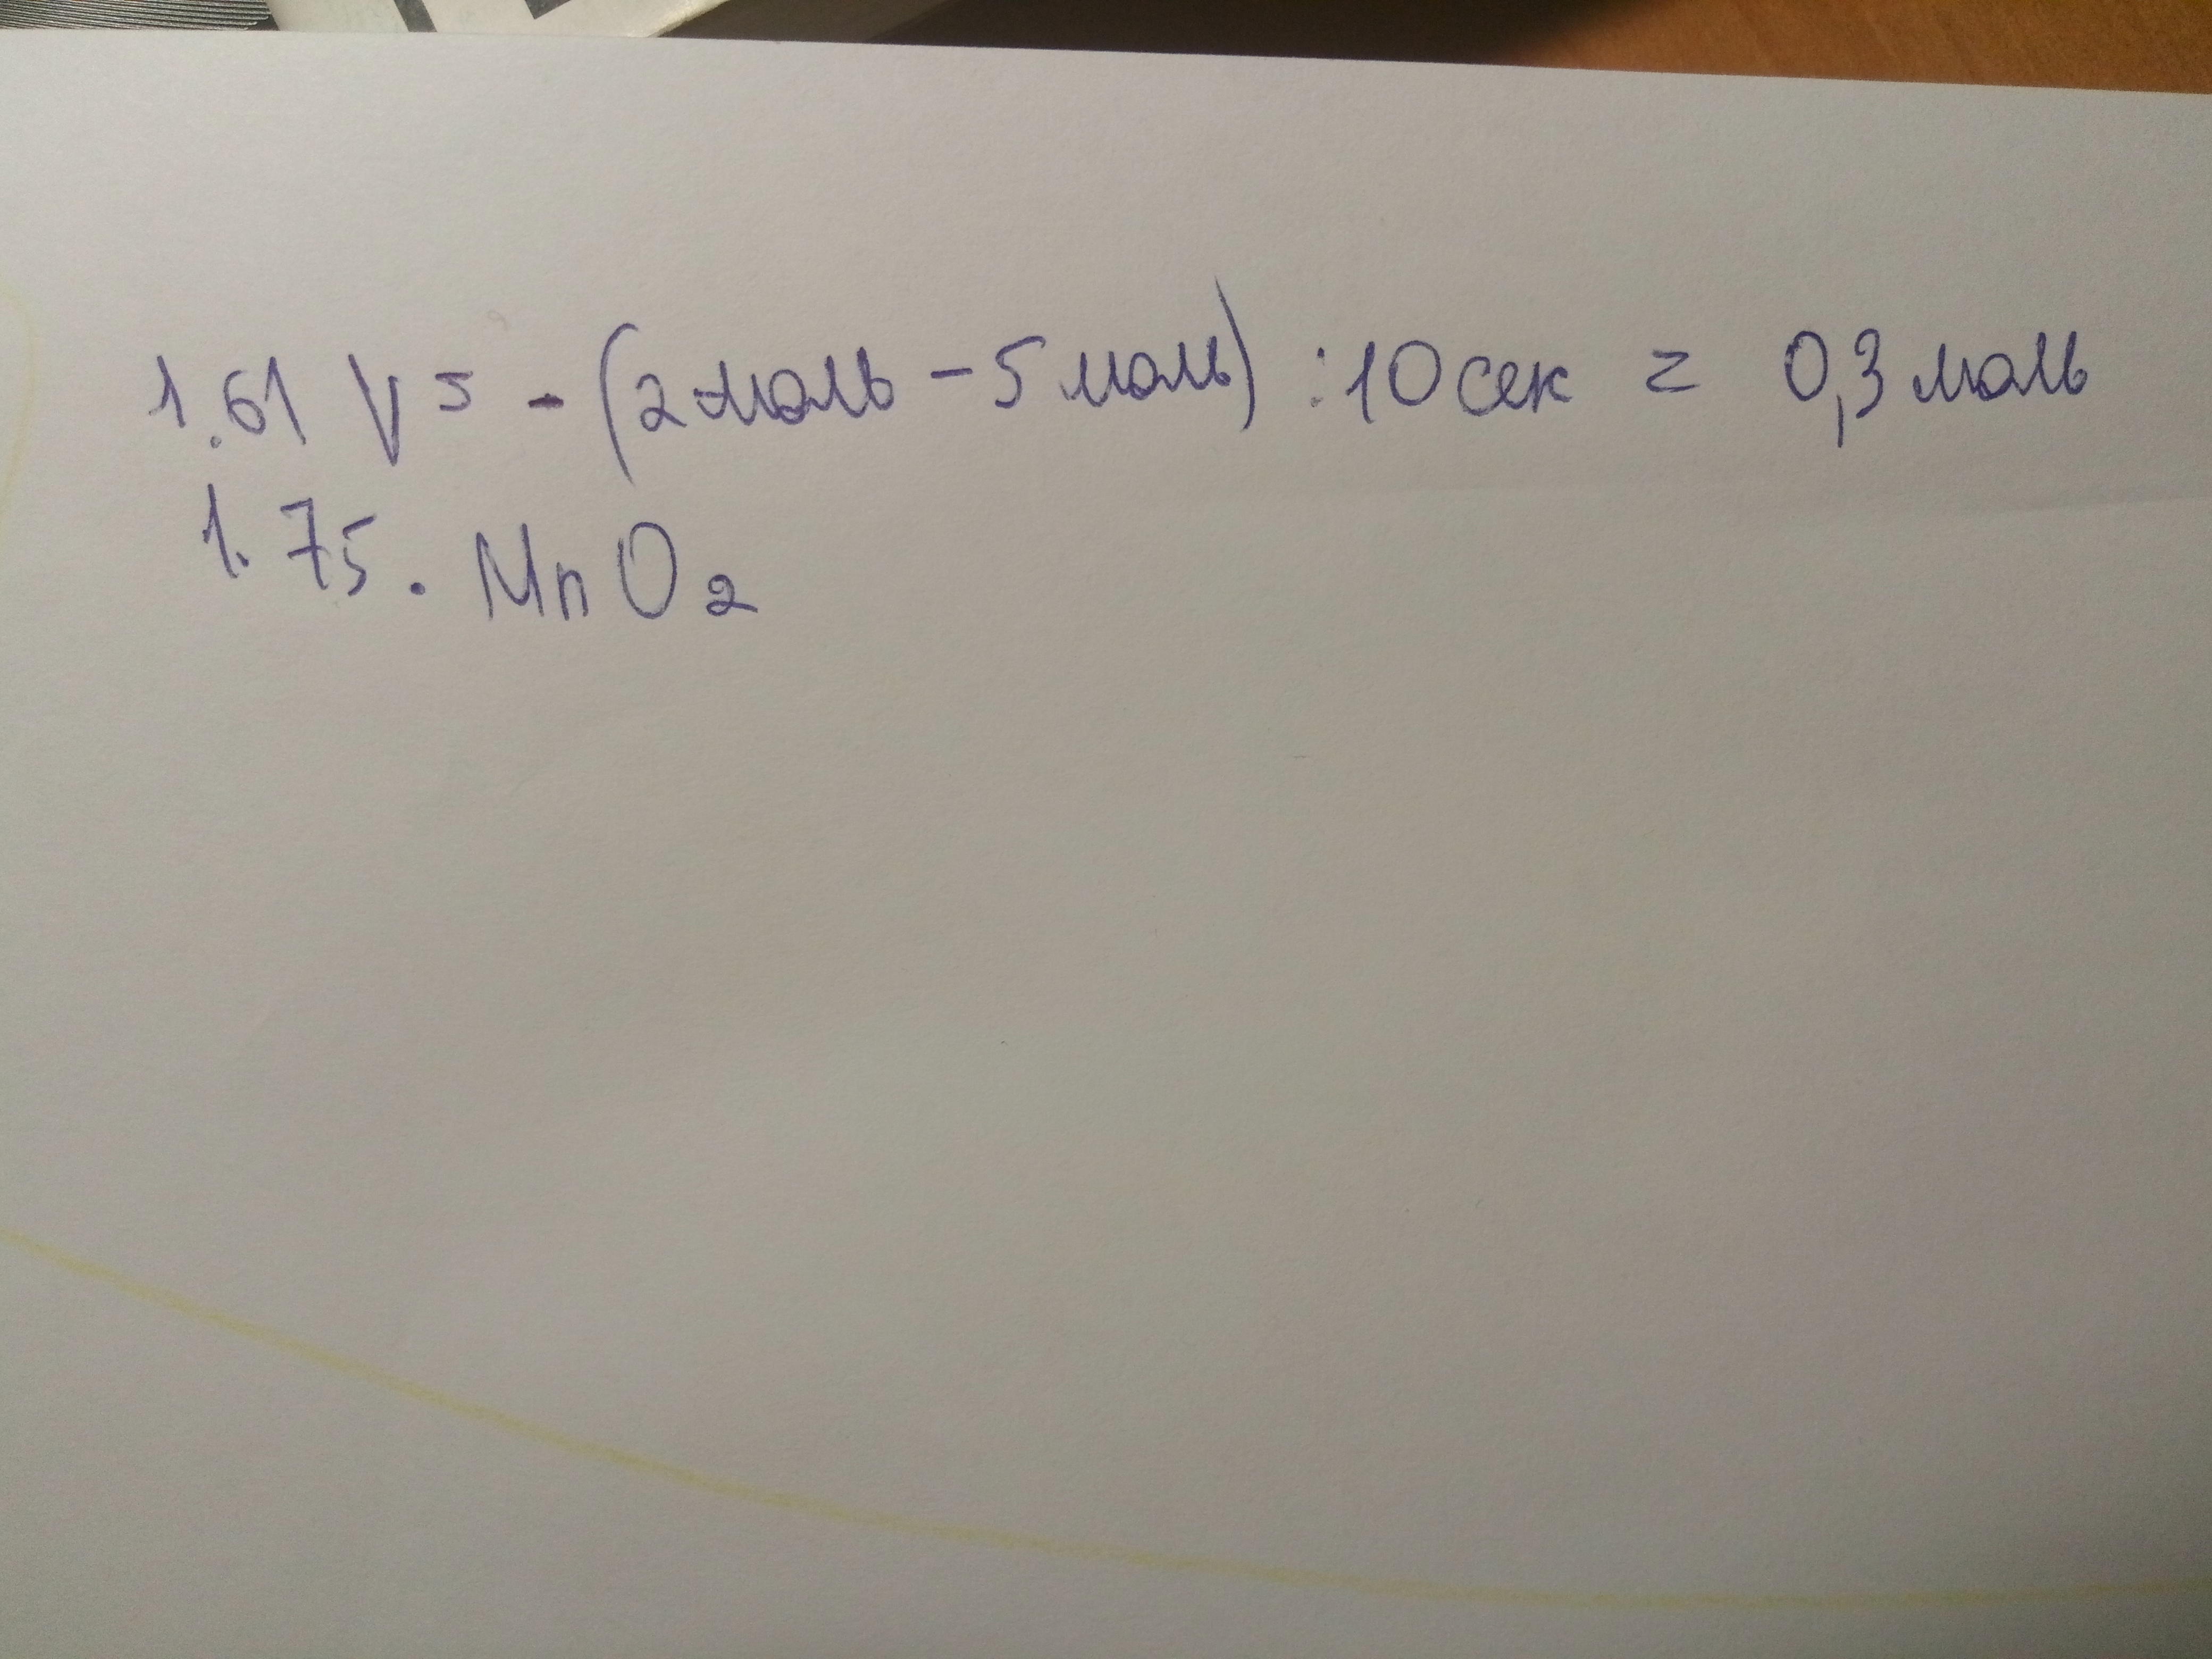 1.61 V = - (2 моль - 5 моль) : 10 сек = 0,3 моль
1.75. MnO2